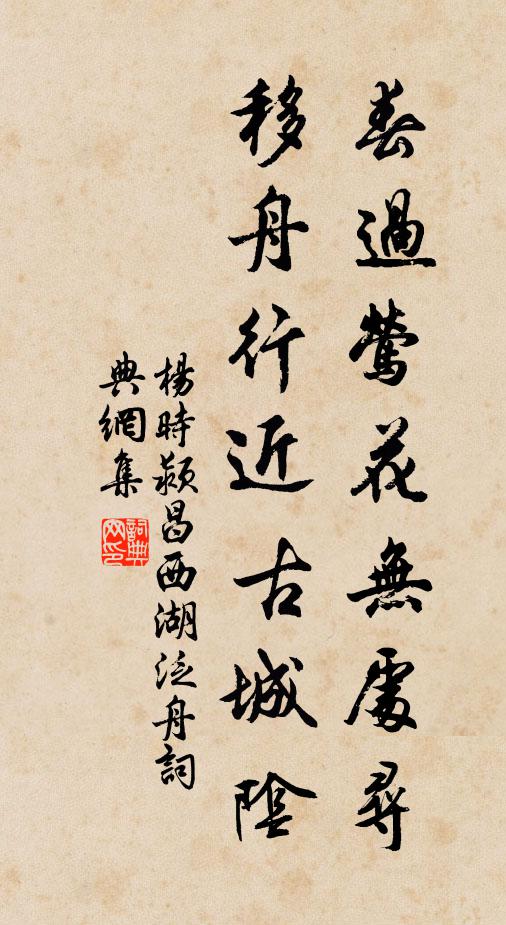 春過鶯花無處尋
移舟行近古城陰
楊時潁昌西湖泛舟詞
典網集
詞典
网印